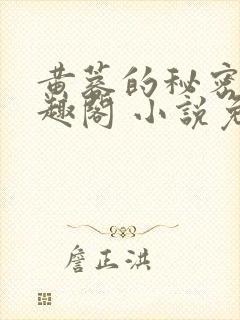 黄蓉的秘密
趣閣 小說免
詹正洪